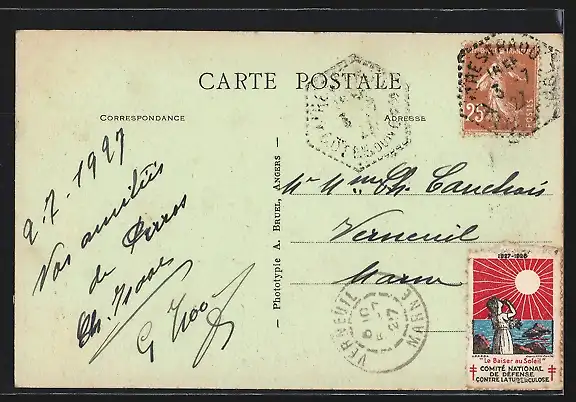 CARTE POSTALE
CORRESPONDANCE
ADRESSE
2.7.1927
Vos amitiés
de Perros
Ch. Isaac
G
Phototypie A. BRUEL, ANGERS
Mr Mme Ch. Cauchois
Verneuil
Marne
25
POSTES
VERNEUIL
MARNE
27
1927-1928
"Le Baiser au Soleil"
COMITÉ NATIONAL
DE DÉFENSE
CONTRE LA TUBERCULOSE